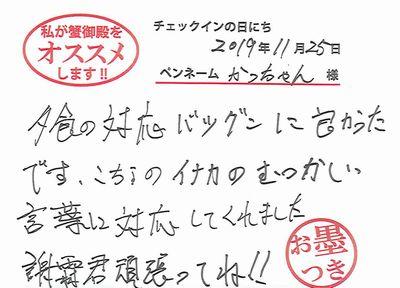 私が蟹御殿を
オススメ
します!!
チェックインの日にち
2019年11月25日
ペンネーム かっちゃん 様
夕食の対応バツグンに良かった
です、こちらのイナカのむつかしい
言葉に対応してくれました
謝霖君頑張ってね!!
お墨
つき